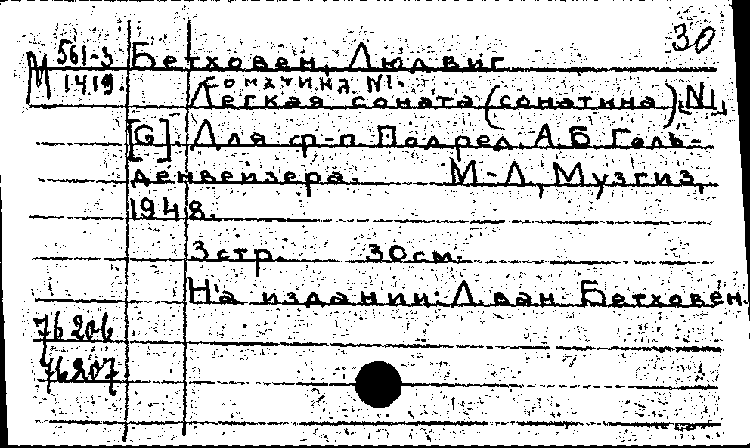 30
М 561-3 Бетховен, Людвиг
1419. Сонатина N1.
Легкая соната (сонатина) N1,
[G]. Для ф-п. Под ред. А.Б.Голь-
денвейзера. М-Л, Музгиз,
1948.
3 стр. 30 см.
На издании: Л. ван Бетховен
76206
76207